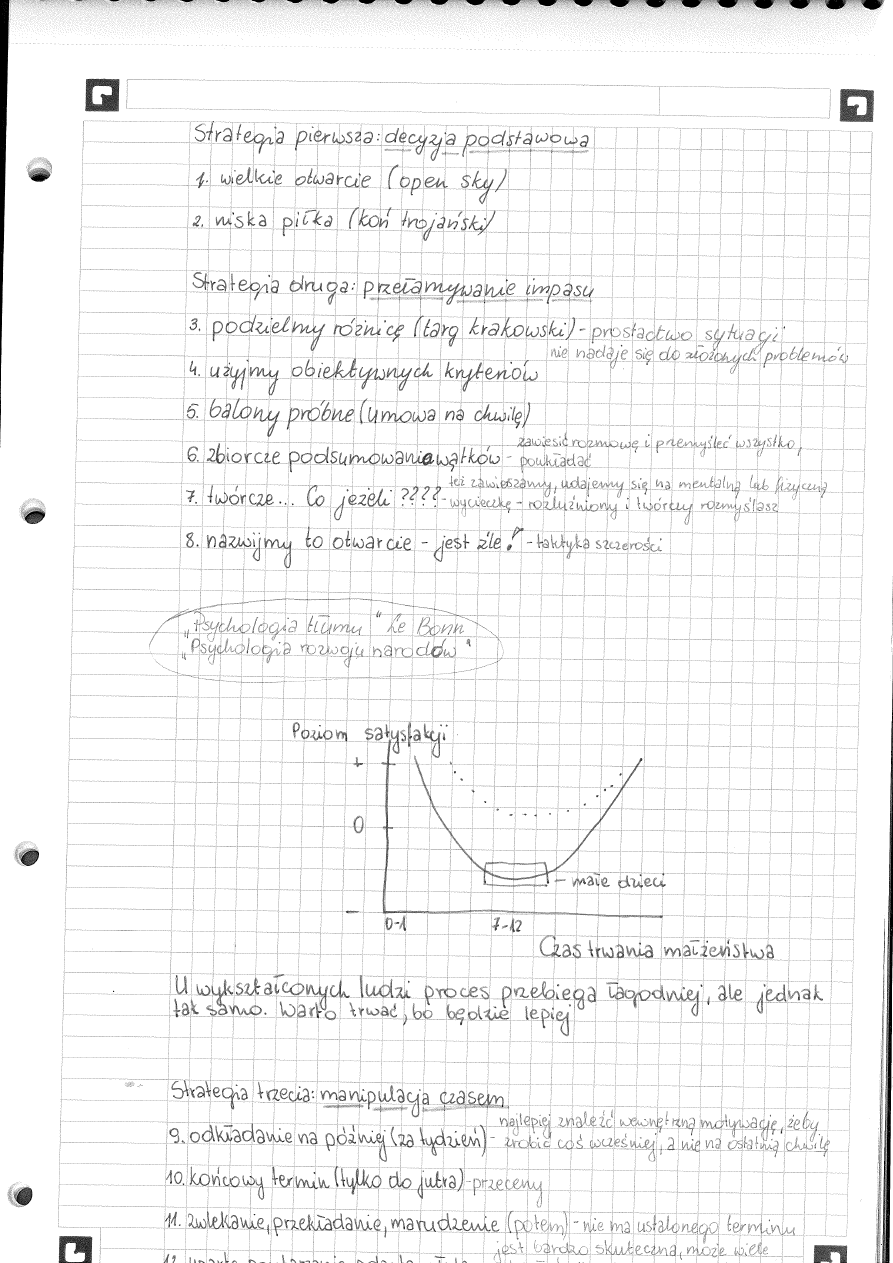 Strategia pierwsza: decyzja podstawowa
1. wielkie otwarcie (open sky)
2. niska piłka (koń trojański)
Strategia druga: przełamywanie impasu
3. podzielmy różnicę (targ krakowski) - prostactwo sytuacji
nie nadaje się do złożonych problemów
4. użyjmy obiektywnych kryteriów
5. balony próbne (umowa na chwilę)
6. zbiorcze podsumowanie wątków - zawiesić rozmowę i przemyśleć wszystko,
poukładać
7. twórcze... Co jeżeli ???? - też zawieszamy, udajemy się na mentalną lub fizyczną
wycieczkę - rozluźniony i twórczy rozmyślasz
8. nazwijmy to otwarcie - jest źle! - taktyka szczerości
"Psychologia tłumu" Le Bonn
"Psychologia rozwoju narodów"
Poziom satysfakcji
+
0
- małe dzieci
-
0-1 7-12
Czas trwania małżeństwa
U wykształconych ludzi proces przebiega łagodniej, ale jednak
tak samo. Warto trwać, bo będzie lepiej
Strategia trzecia: manipulacja czasem
9. odkładanie na później (za tydzień) - najlepiej znaleźć wewnętrzną motywację, żeby
zrobić coś wcześniej, a nie na ostatnią chwilę
10. końcowy termin (tylko do jutra) - przeceny
11. zwlekanie, przekładanie, marudzenie (potem) - nie ma ustalonego terminu
jest bardzo skuteczna, może wiele
12.